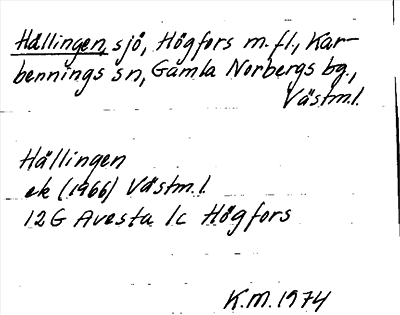 Hällingen, sjö, Högfors m.fl., Kar-
bennings sn, Gamla Norbergs bg.,
Västm.l.
Hällingen
ek (1966) Västm.l.
12G Avesta 1c Högfors
K.M. 1974